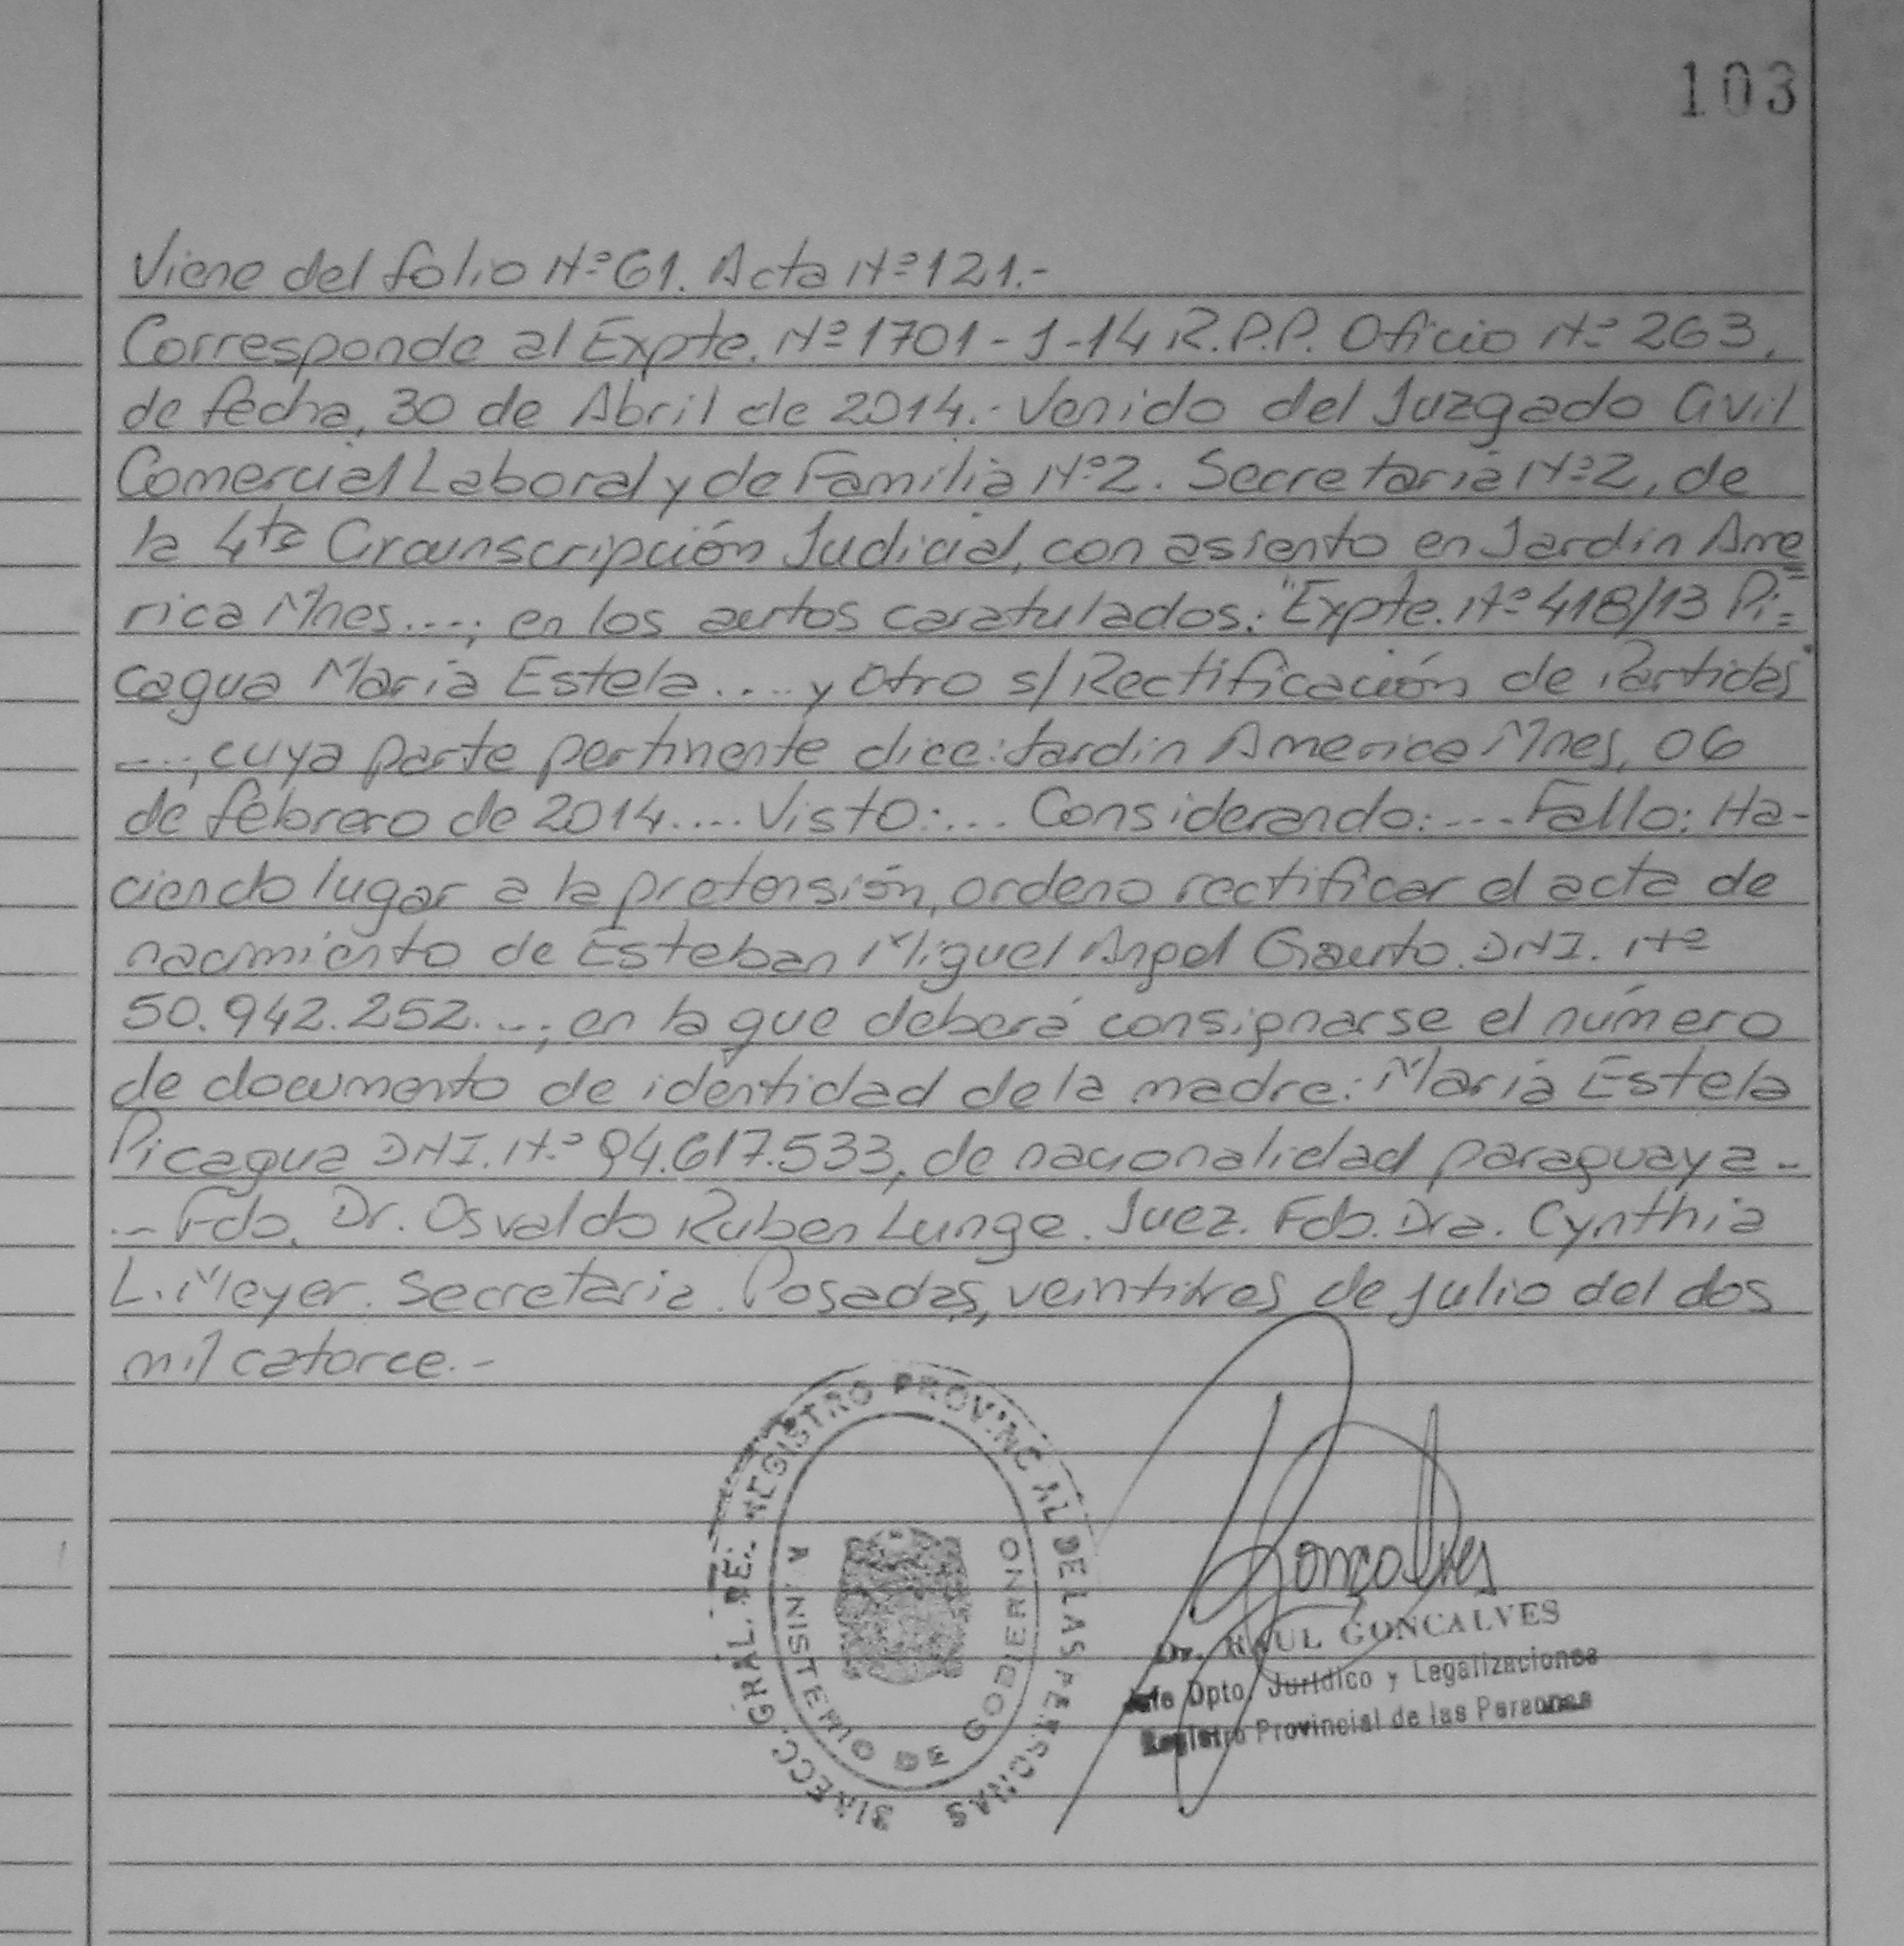 103
Viene del folio Nº 61. Acta Nº 121.-
Corresponde al Expte. Nº 1701-J-14 R.P.P. Oficio Nº 263,
de fecha, 30 de Abril de 2014.- Venido del Juzgado Civil
Comercial Laboral y de Familia Nº 2. Secretaria Nº 2, de
la 4ta Circunscripción Judicial, con asiento en Jardín Ame=
rica Mnes....; en los autos caratulados: "Expte. Nº 418/13 Pi=
cagua Maria Estela.... y Otro s/Rectificación de Partidas"
....; cuya parte pertinente dice: Jardin America Mnes, 06
de febrero de 2014.... Visto:... Considerando:.... Fallo: Ha-
ciendo lugar a la pretensión, ordeno rectificar el acta de
nacimiento de Esteban Miguel Angel Gauto. DNI. Nº
50.942.252....; en la que deberá consignarse el número
de documento de identidad de la madre: Maria Estela
Picagua DNI. Nº 94.617.533, de nacionalidad paraguaya -
.- Fdo. Dr. Osvaldo Ruben Lunge. Juez. Fdo. Dra. Cynthia
L. Meyer. Secretaria. Posadas, veintitres de julio del dos
mil catorce.-
DIRECC. GRAL. DEL REGISTRO PROVINCIAL DE LAS PERSONAS
MINISTERIO DE GOBIERNO
Goncalves
Dr. RAUL GONCALVES
Jefe Dpto. Jurídico y Legalizaciones
Registro Provincial de las Personas